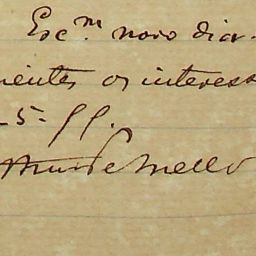 Esc.m novo diar.
nientes os interess
-5-99.
de Mello